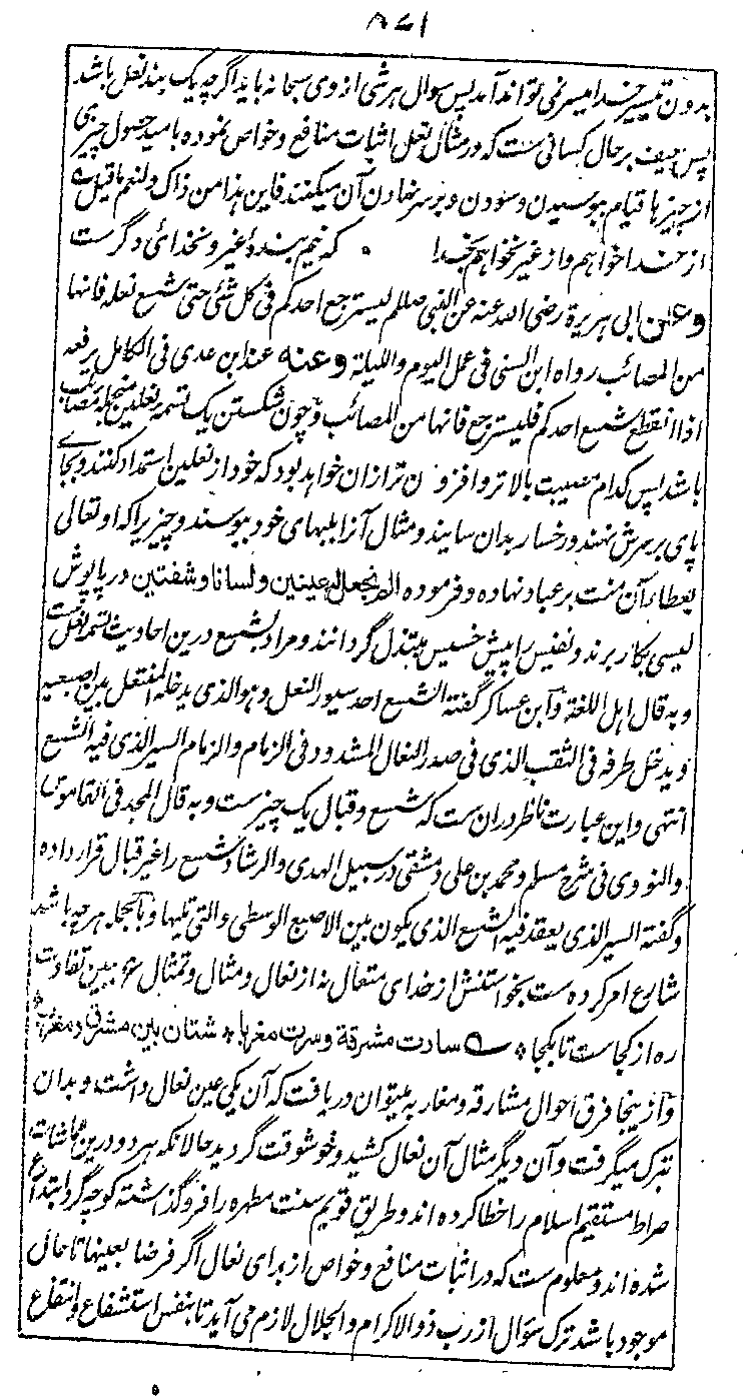 ۸۷۱
بدون تیسیر خدا میسر نمی تواند آمد پس سوال هر شی از وی سبحانه باید اگرچه یک بند نعل باشد
پس حیف بر حال کسانی ست که در مثال نعل اثبات منافع و خواص نموده بامید حصول چیزی
از چیزها قیام ببوسیدن و سودن و بر سر نهادن آن میکنند فاین هذا من ذاک و لنعم ما قیل
از خدا خواهم و از غیر نخواهم بخدا • که نیم بندهٔ غیر و نخدائی دگر ست
وعن ابی هریرة رضی الله عنه عن النبی صللم لیسترجع احدکم فی کل شئ حتی شسع نعله فانها
من المصائب رواه ابن السنی فی عمل الیوم واللیلة وعنه عند ابن عدی فی الکامل یرفعه
اذا انقطع شسع احدکم فلیسترجع فانها من المصائب و چون شکستن یک تسمه نعلین منجمله مصائب
باشد پس کدام مصیبت بالاتر و افزون تر ازان خواهد بود که خود از نعلین استمداد کنند و بجای
پای بر سرش نهند و رخسار بدان سایند و مثال آنرا بلبهای خود ببوسند و چیزیرا که او تعالی
بعطای آن منت بر عباد نهاده و فرموده الم نجعل له عینین ولسانا وشفتین در پاپوش
لیسی بکار برند و نفیس را پیش خسیس مبتذل گردانند و مراد بشسع درین احادیث تسمه نعل ست
وبه قال اهل اللغة وابن عساکر گفته الشسع احد سیور النعل وهو الذی یدخله المنتعل بین اصبعیه
ویدخل طرفه فی الثقب الذی فی صدر النعال المشدود فی الزمام والزمام السیر الذی فیه الشسع
انتهی و این عبارت ناظر دران ست که شسع و قبال یک چیز ست وبه قال المجد فی القاموس
والنووی فی شرح مسلم و محمد بن علی دمشقی در سبیل الهدی والرشاد شسع را غیر قبال قرار داده
و گفته السیر الذی یعقد فیه الشسع الذی یکون بین الاصبع الوسطی والتی تلیها و بالجمله هر چه باشد
شارع امر کرده ست بخواستنش از خدای متعال نه از نعال و مثال و تمثال ع ببین تفاوت
ره از کجاست تا بکجا • سادت مشرقة وسرت مغربا • شتان بین مشرق ومغرب
و از ینجا فرق احوال مشارقه و مغاربه میتوان دریافت که آن یکی عین نعال داشت و بدان
تبرک میگرفت و آن دیگر مثال آن نعال کشید و خوشوقت گردید حالانکه هر دو درین
صراط مستقیم اسلام را خطا کرده اند و طریق قویم سنت مطهره را فرو گذاشته کوچه گرد ابتداع
شده اند و معلوم ست که در اثبات منافع و خواص از برای نعال اگر فرضا بعینها تا حال
موجود باشد ترک سؤال از رب ذو الاکرام والجلال لازم می آید تا بنفس استشفاع و انتفاع